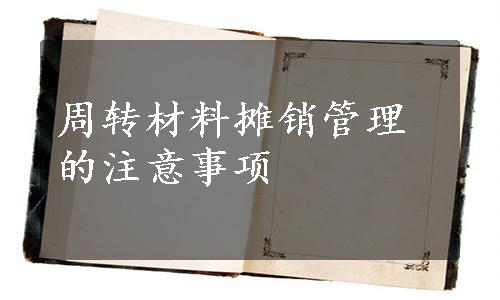 周转材料摊销管理
的注意事项